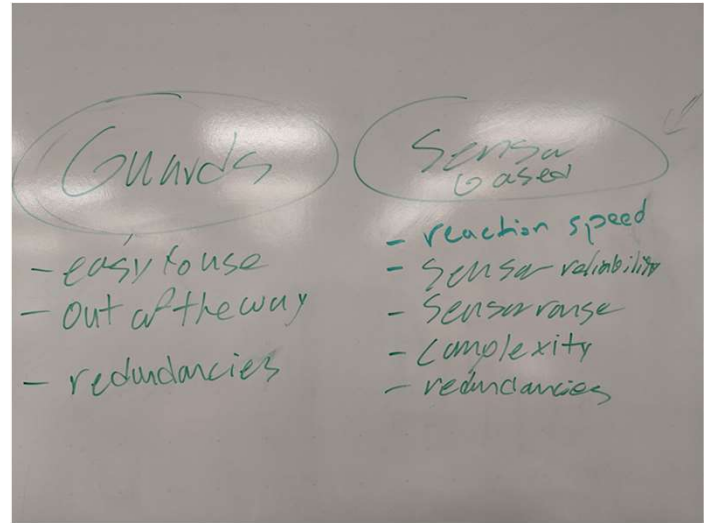 Guards
- easy to use
- out of the way
- redundancies
Sensor
based
- reaction speed
- sensor reliability
- sensor range
- complexity
- redundancies